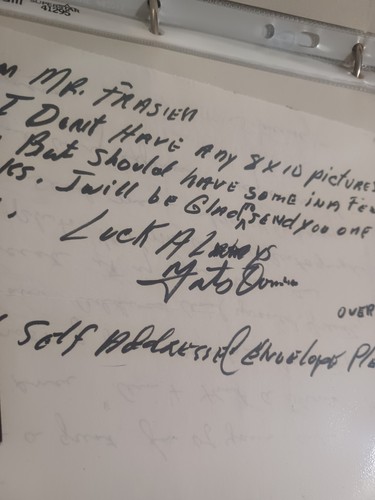 SUPERSTAR
41295
MR. FRASIER
I Don't HAVE ANY 8X10 pictures
But Should HAVE SOME IN A FEW
I will be Glad to SEND YOU ONE
Luck ALWAYS
OVER
Self Addressed Envelope Ple